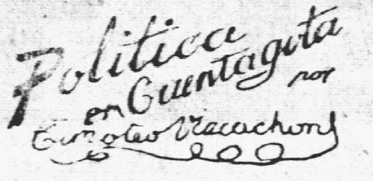 Politica
en Cuentagota
por
Timoteo Vacachons